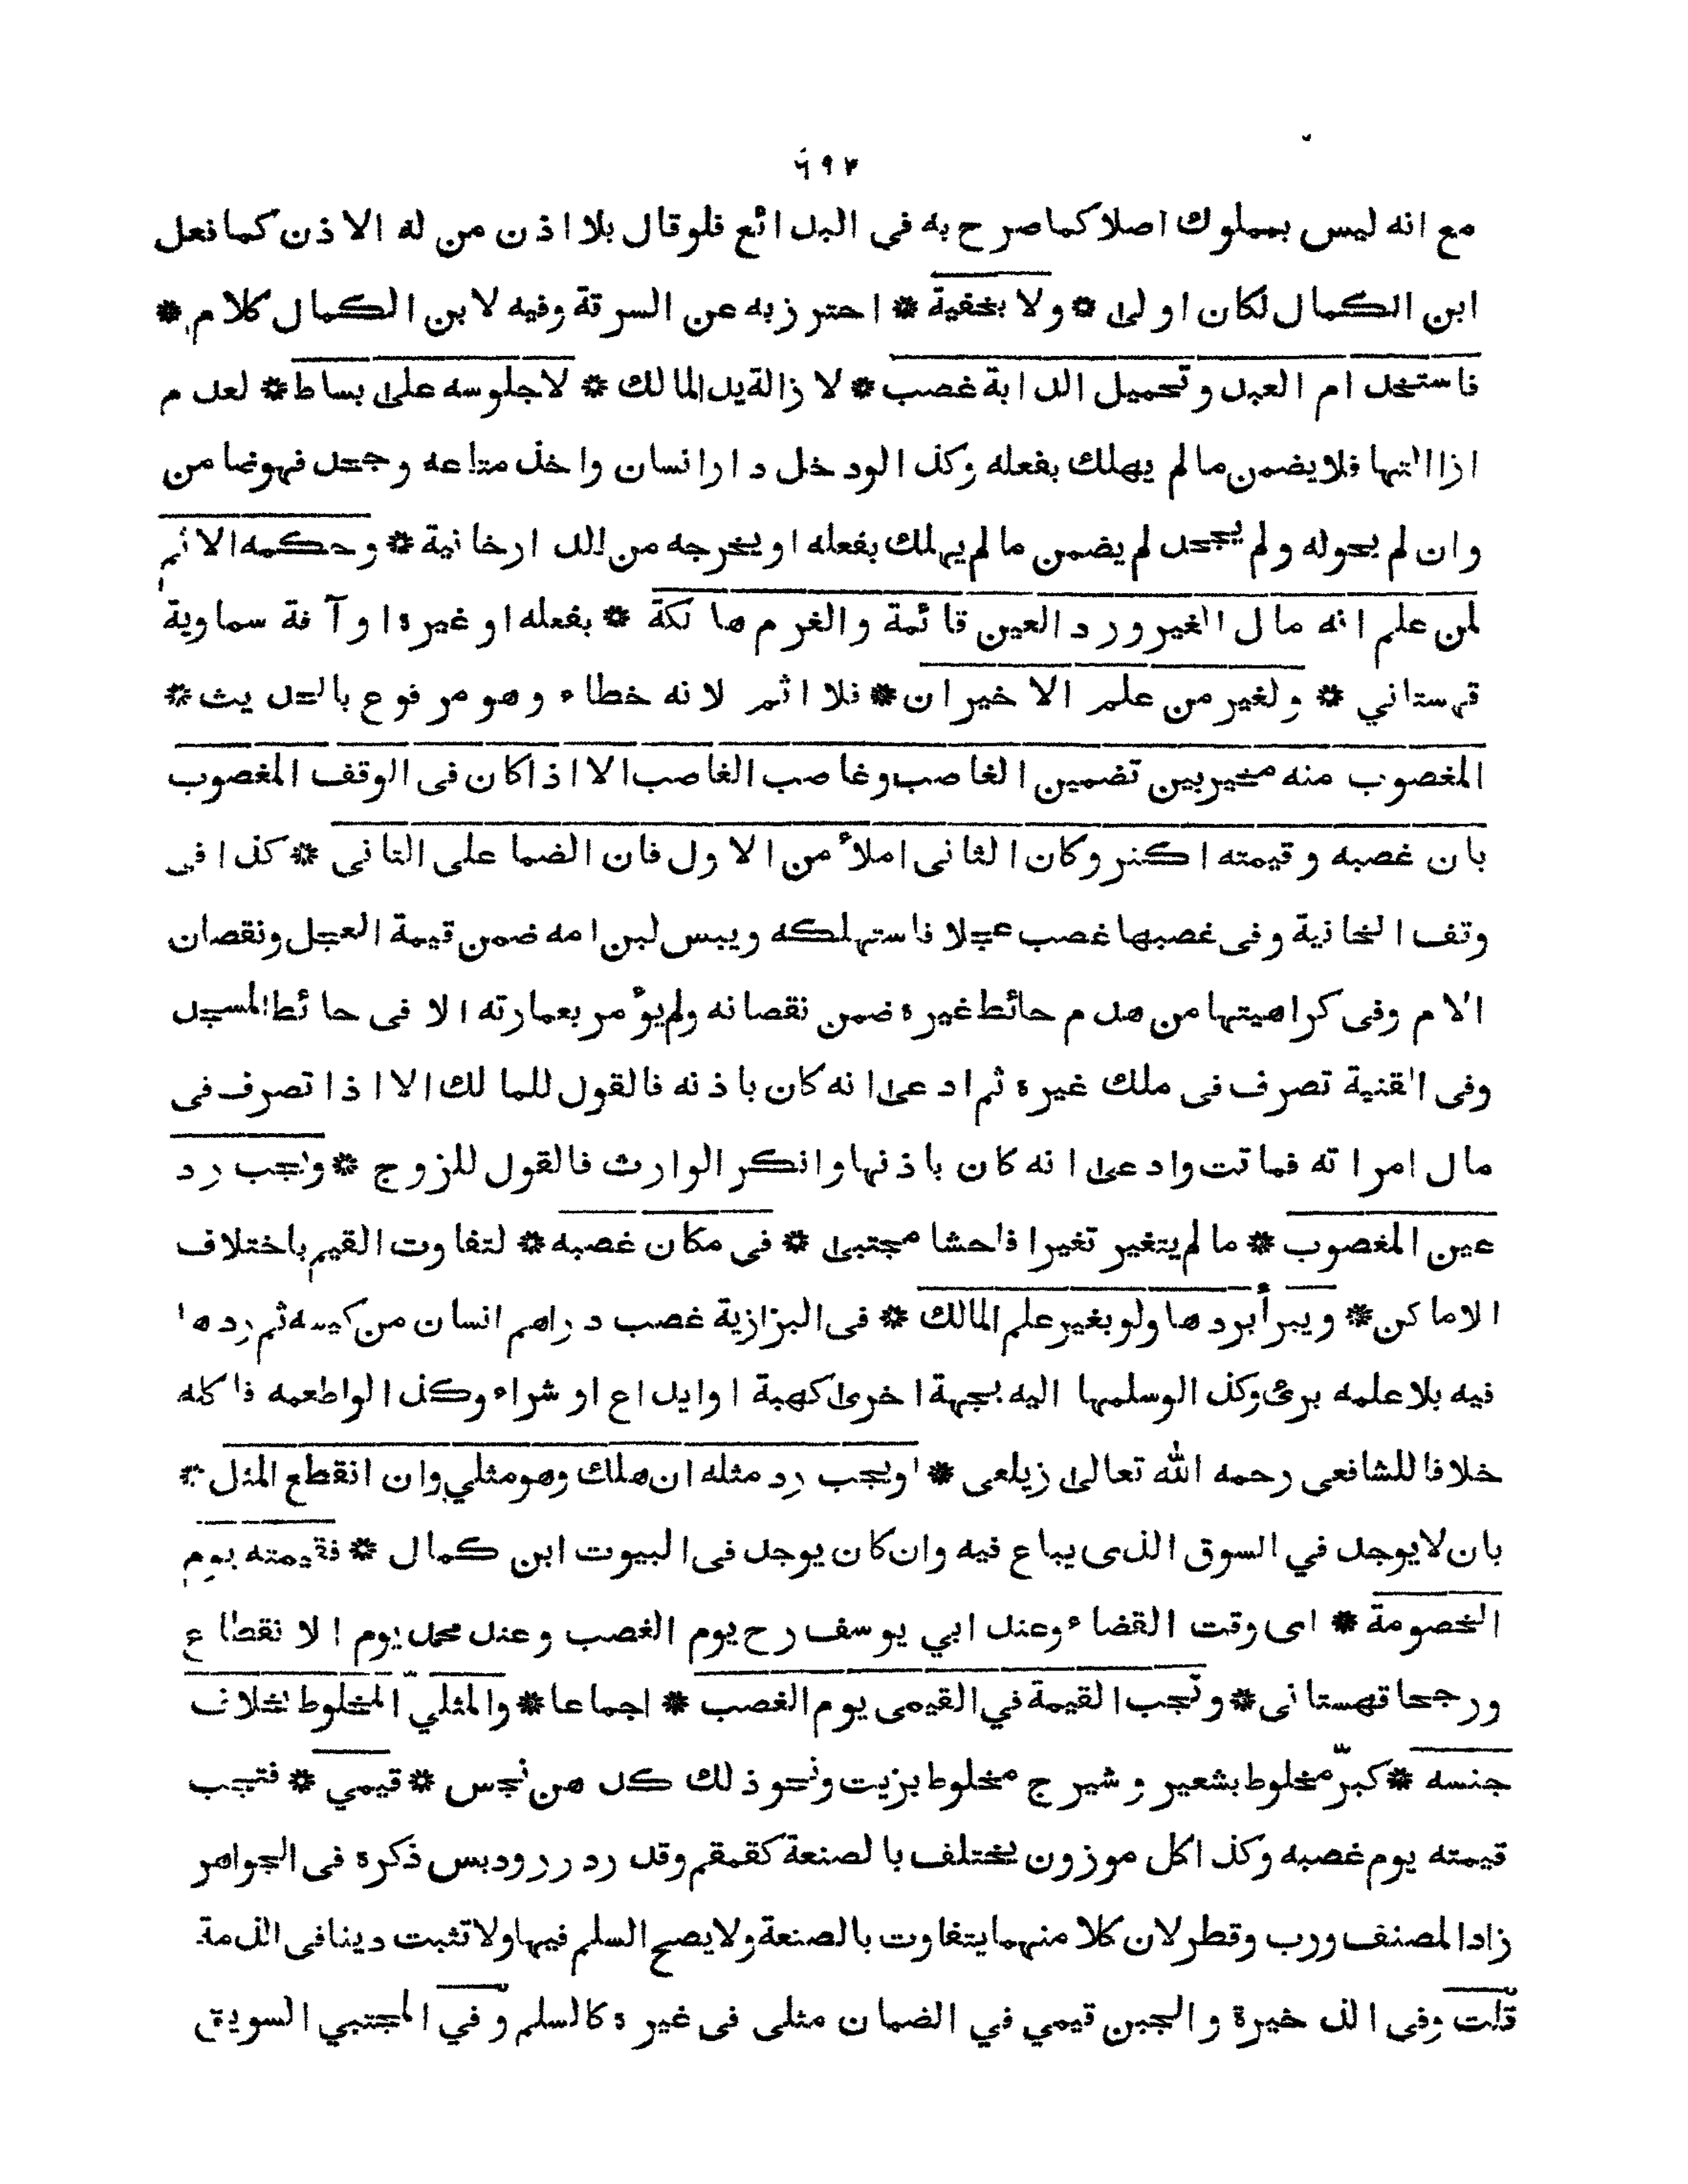 ٦٩٢
مع انه ليس بمملوك اصلا كما صرح به في البدائع فلو قال بلا اذن من له الاذن كما فعل
ابن الكمال لكان اولى * ولا بخفية * احترز به عن السرقة وفيه لابن الكمال كلام *
فاستخدام العبد وتحميل الدابة غصب * لازالة يد المالك * لا جلوسه على بساط * لعدم
ازالتها فلا يضمن ما لم يهلك بفعله وكذا لو دخل دار انسان واخذ متاعه وجحد فهو ضامن
وان لم يحوله ولم يجحد لم يضمن ما لم يهلك بفعله او يخرجه من الدار خانية * وحكمه الاثم
لمن علم انه مال الغير ورد العين قائمة والغرم هالكة * بفعله او غيره او آفة سماوية
قهستاني * ولغير من علم الاخيران * فلا اثم لانه خطاء وهو مرفوع بالحديث *
المغصوب منه مخير بين تضمين الغاصب وغاصب الغاصب الا اذا كان فى الوقف المغصوب
بان غصبه وقيمته اكثر وكان الثانى املأ من الاول فان الضما على الثانى * كذا فى
وقف الخانية وفى غصبها غصب عجلا فاستهلكه ويبس لبن امه ضمن قيمة العجل ونقصان
الام وفى كراهيتها من هدم حائط غيره ضمن نقصانه ولم يؤمر بعمارته الا فى حائط المسجد
وفى القنية تصرف فى ملك غيره ثم ادعى انه كان باذنه فالقول للمالك الا اذا تصرف فى
مال امراته فماتت وادعى انه كان باذنها وانكر الوارث فالقول للزوج * واجب رد
عين المغصوب * ما لم يتغير تغيرا فاحشا مجتبى * فى مكان غصبه * لتفاوت القيم باختلاف
الاماكن * ويبرأ بردها ولو بغير علم المالك * فى البزازية غصب دراهم انسان من كيسه ثم ردها
فيه بلا علمه برئ وكذا لو سلمها اليه بجهة اخرى كهبة او ايداع او شراء وكذا لو اطعمه فاكله
خلافا للشافعى رحمه الله تعالى زيلعى * او يجب رد مثله ان هلك وهو مثلي وان انقطع المثل *
بان لا يوجد في السوق الذى يباع فيه وان كان يوجد فى البيوت ابن كمال * فقيمته يوم
الخصومة * اى وقت القضاء وعند ابي يوسف رح يوم الغصب وعند محمد يوم الانقطاع
ورجحا قهستانى * وتجب القيمة في القيمى يوم الغصب * اجماعا * والمثلي المخلوط بخلاف
جنسه * كبرّ مخلوط بشعير وشيرج مخلوط بزيت ونحو ذلك كدهن نجس * قيمي * فتجب
قيمته يوم غصبه وكذا كل موزون يختلف بالصنعة كقمقم وقدر درر ودبس ذكره فى الجواهر
زاد المصنف ورب وقطر لان كلا منهما يتفاوت بالصنعة ولا يصح السلم فيها ولا تثبت دينا فى الذمة
قلت وفى الذخيرة والجبن قيمي في الضمان مثلى فى غيره كالسلم وفي المجتبي السويق